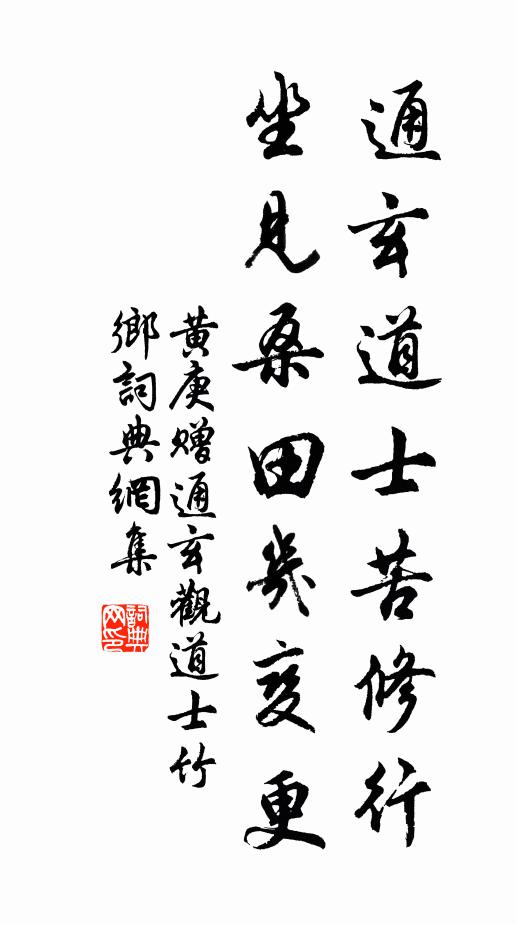 通玄道士苦修行
坐見桑田幾變更
黃庚贈通玄觀道士竹
鄉詞典網集
詞典網印